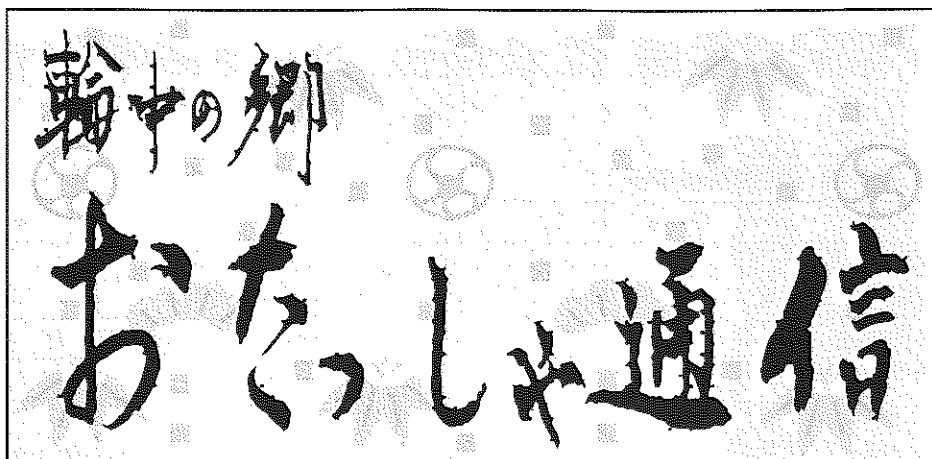 輪中の郷
おたっしゃ通信